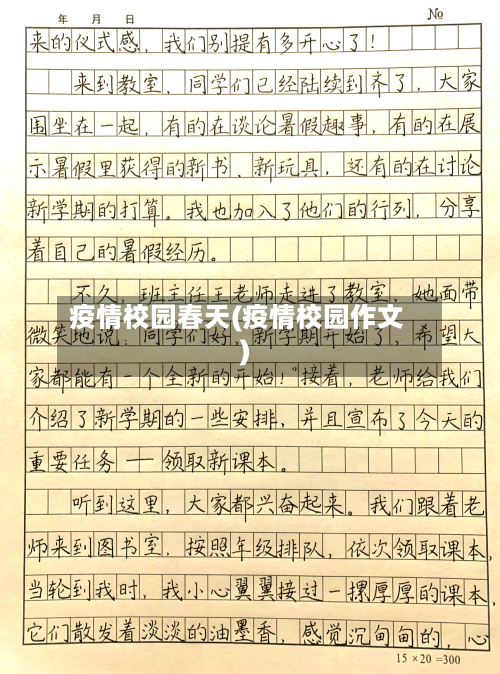 年 月 日 №
来的仪式感，我们别提有多开心了！
来到教室，同学们已经陆续到齐了，大家
围坐在一起，有的在谈论暑假趣事，有的在展
示暑假里获得的新书、新玩具，还有的在讨论
新学期的打算。我也加入了他们的行列，分享
着自己的暑假经历。
不久，班主任王老师走进了教室，她面带
疫情校园春天(疫情校园作文
微笑地说：同学们好，新学期开始了，希望大
)
家都能有一个全新的开始！"接着，老师给我们
介绍了新学期的一些安排，并且宣布了今天的
重要任务——领取新课本。
听到这里，大家都兴奋起来。我们跟着老
师来到图书室，按照年级排队，依次领取课本，
当轮到我时，我小心翼翼接过一摞厚厚的课本，
它们散发着淡淡的油墨香，感觉沉甸甸的，心
15×20=300